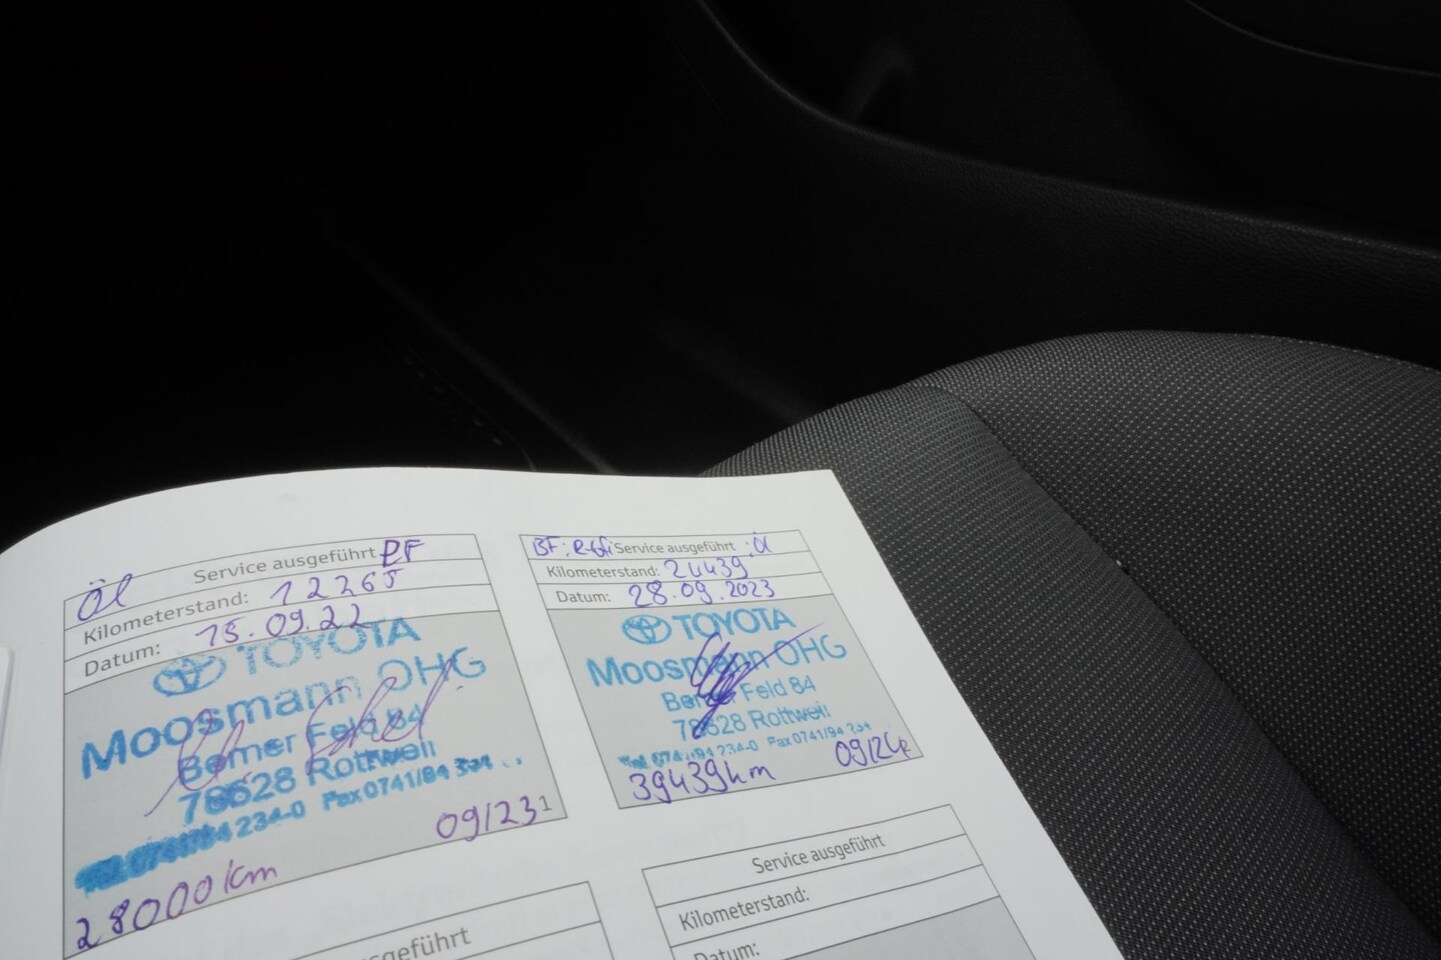 Öl Service ausgeführt PF
Kilometerstand: 12265
Datum: 15.09.22
TOYOTA
Moosmann OHG
Berner Feld 84
78628 Rottweil
234-0 Fax 0741/94 234
09/23 1
28000 km
BF: Service ausgeführt: Öl
Kilometerstand: 24439
Datum: 28.09.2023
TOYOTA
Moosmann OHG
Berner Feld 84
78628 Rottweil
234-0 Fax 0741/94 234
39439 km 09/24
Service ausgeführt
Kilometerstand:
Datum:
ausgeführt